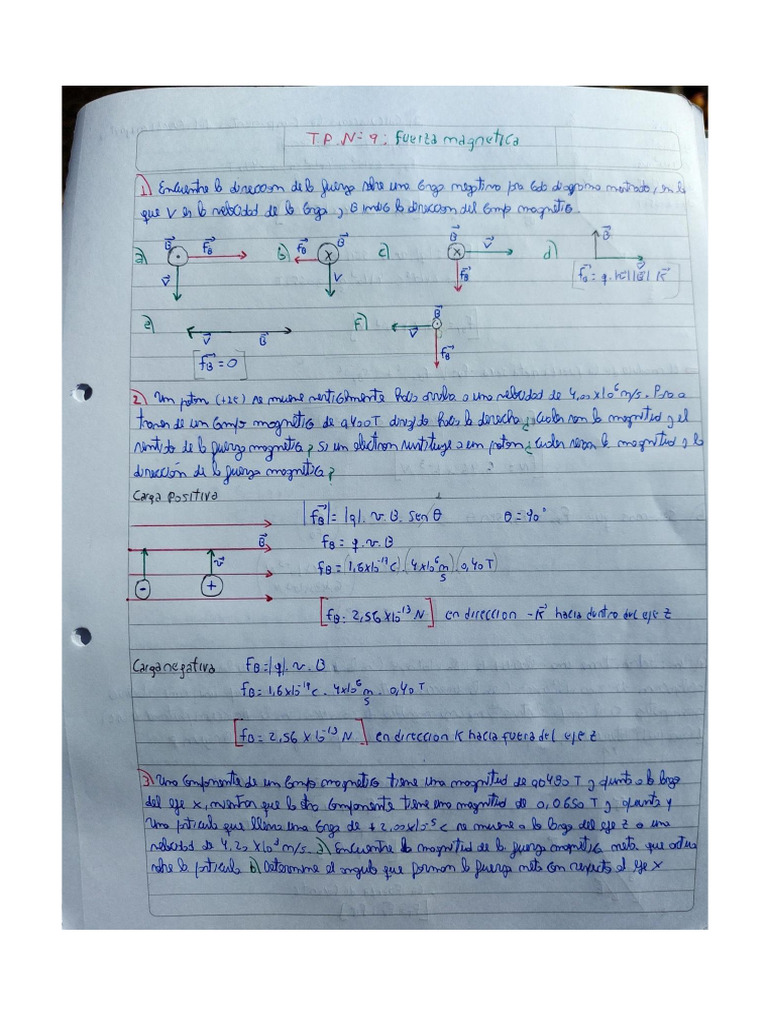 T.P. N=9: Fuerza magnetica
1) Encuentre la direccion de la fuerza sobre una carga negativa por cada diagrama mostrado, en la
que V es la velocidad de la carga y B indica la direccion del campo magnetico.
a) B fB V b) fB B V c) B V fB d) B V
[fB = q.|V||B| K]
e) V B f) B V fB
[fB = 0]
2) Un proton (+1e) se mueve verticalmente hacia arriba a una velocidad de 4,00x10^6 m/s. Pasa a
traves de un campo magnetico de 0,400 T dirigido hacia la derecha ¿Cuales son la magnitud y el
sentido de la fuerza magnetica? Si un electron sustituye a un proton ¿Cuales seran la magnitud y la
dirección de la fuerza magnetica?
Carga Positiva
|fB| = |q|. v. B. sen θ θ = 90°
B fB = q.v.B
V fB = (1,6x10^-19 C).(4x10^6 m/s)(0,40T)
- +
[fB = 2,56x10^-13 N] en direccion -K hacia dentro del eje z
Carga negativa fB = |q|. v. B
fB = 1,6x10^-19 C. 4x10^6 m/s. 0,40T
[fB = 2,56 x 10^-13 N] en direccion K hacia fuera del eje z
3) Una componente de un campo magnetico tiene una magnitud de 0,0480 T y apunta a lo largo
del eje x, mientras que la otra componente tiene una magnitud de 0,0650 T y apunta y
Una particula que lleva una carga de +2,00x10^-5 C se mueve a lo largo del eje z a una
velocidad de 4,20 x10^3 m/s. a) Encuentre la magnitud de la fuerza magnetica neta que actua
sobre la particula b) Determine el angulo que forman la fuerza neta con respecto al eje x